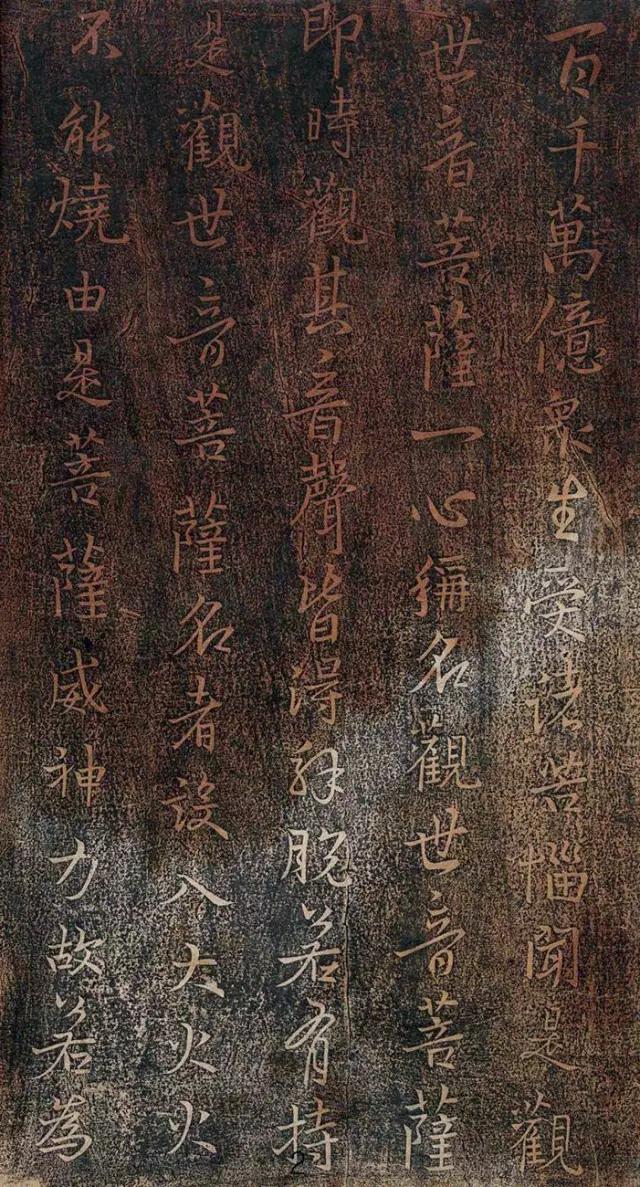 百千萬億眾生受諸苦惱聞是觀
世音菩薩一心稱名觀世音菩薩
即時觀其音聲皆得解脫若有持
是觀世音菩薩名者設入大火火
不能燒由是菩薩威神力故若為
2